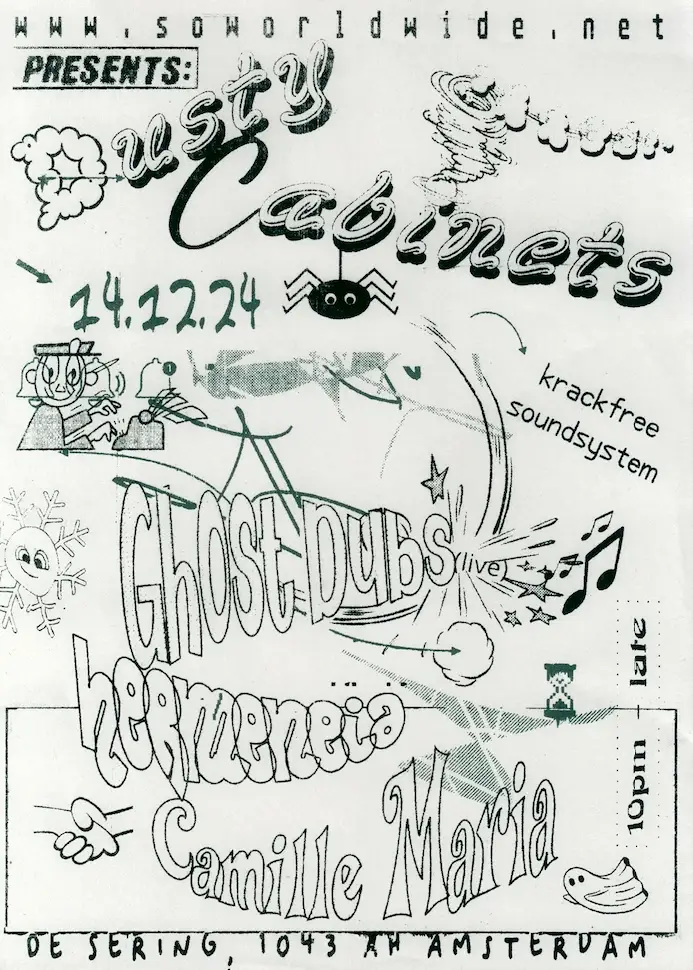 www.soworldwide.net
PRESENTS:
Dusty
Cabinets
14.12.24
krackfree
soundsystem
Ghost Dubs (live)
hermeneia
10pm - late
Camille Maria
DE SERING, 1043 AH AMSTERDAM